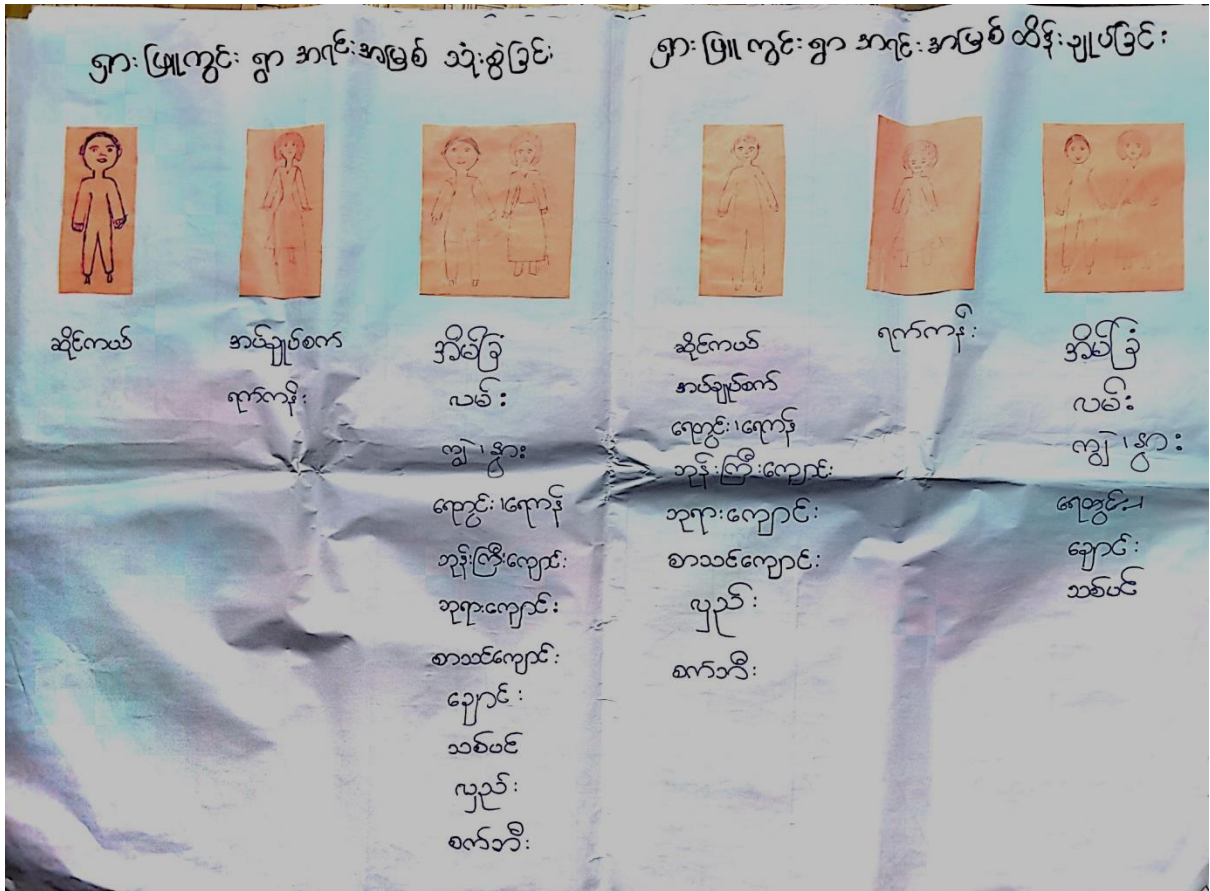 ရှားဖြူကွင်း ရွာ အရင်းအမြစ် သုံးစွဲခြင်း
ဆိုင်ကယ်
အပ်ချုပ်စက်
ရက်ကန်း
အိမ်ခြံ
လမ်း
ကျွဲ ၊ နွား
ရေတွင်း ၊ ရေကန်
ဘုန်းကြီးကျောင်း
ဘုရားကျောင်း
စာသင်ကျောင်း
ချောင်း
သစ်ပင်
လှည်း
စက်ဘီး
ရှားဖြူကွင်း ရွာ အရင်းအမြစ် ထိန်းချုပ်ခြင်း
ဆိုင်ကယ်
အပ်ချုပ်စက်
ရေတွင်း ၊ ရေကန်
ဘုန်းကြီးကျောင်း
ဘုရားကျောင်း
စာသင်ကျောင်း
လှည်း
စက်ဘီး
ရက်ကန်း
အိမ်ခြံ
လမ်း
ကျွဲ ၊ နွား
ရေတွင်း ၊
ချောင်း
သစ်ပင်